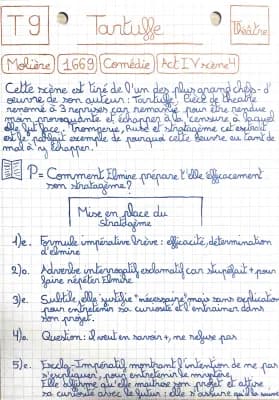 T9
Tartuffe
Théâtre
Molière
1669
Comédie
Act IV scène 4
Cette scène est tirée de l'un des plus grand chefs-d'
oeuvre de son auteur : Tartuffe. Pièce de théatre
remanié à 3 reprises car remanié pour être rendue
moin provoquante et échapper à la censure à laquel
elle fut face. Tromperie, Ruse et stratagème cet extrait
est le parfait exemple de pourquoi cette oeuvre eu tant de
mal à s'y échapper !
P = Comment Elmire prépare t'elle efficacement
son stratagème ?
Mise en place du
stratagème
1)e. Formule impérative brève : efficacité, détermination
d'elmire
2)o. Adverbe interrogatif exclamatif car stupéfait + pour
faire répéter Elmire
3)e. Subtile, elle justifie "nécessaire" mais sans explication
pour entretenir sa curiosité et l'entrainer dans
son projet.
4)o. Question : il veut en savoir +, ne refuse pas
5)e. Exclą-Impératif montrant l'intention de ne pas
s'expliquer, pour entretenir le mystère,
Elle affirme qu'elle maitrise son projet et attise
sa curiosité avec le futur : elle s'assure qu'il